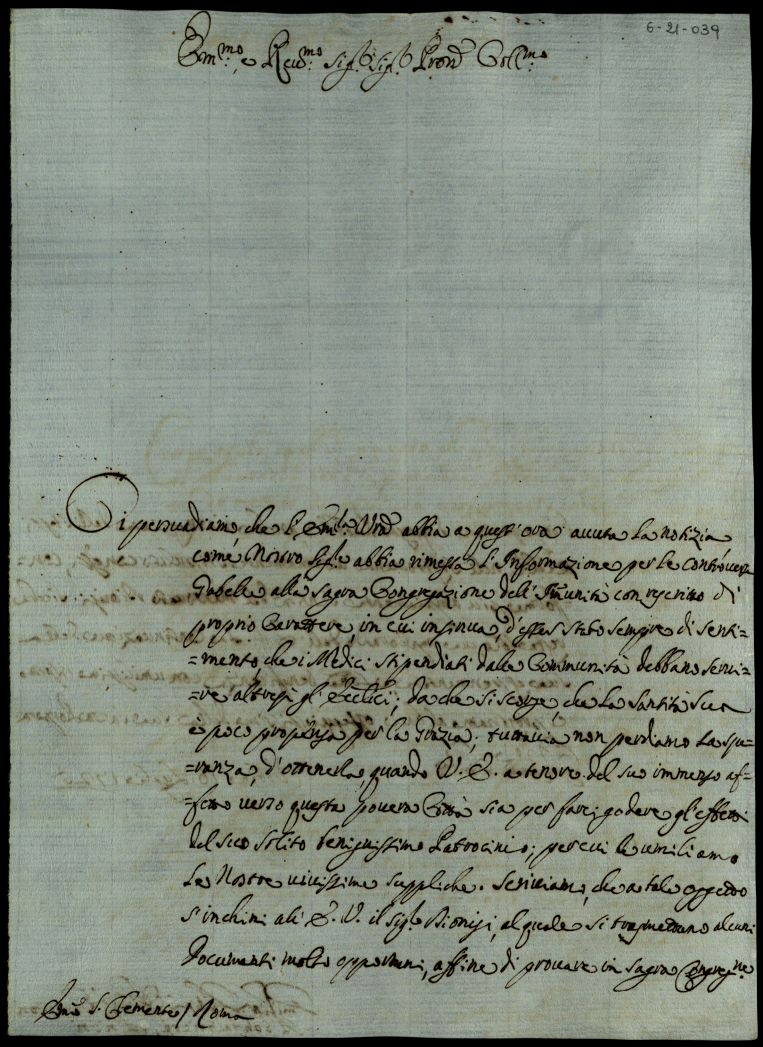 6-21-039
Em.mo e Rev.mo Sig.r Sig.r Pron. Coll.mo
Ci persuadiamo che l'Em.za Vra abbia a quest'ora avuta la notizia
come Nostro Sig.re abbia rimessa l'Informazione per le controverse
Gabelle alla Sagra Congregazione dell'Imunità con rescritto di
proprio Carattere, in cui insinua, d'esser stato sempre di senti-
=mento, che i Medici stipendiati dalle Communità debbano servi-
=re altresì gl'Eccl.ici; da che si scorge, che la Santità Sua
è poco propensa per la Grazia; tuttavia non perdiamo la spe-
=ranza, d'ottenerla, quando V. E. a tenore del suo immenso af-
=fetto verso questa povera Città sia per farci godere gl'effetti
del suo solito benignissimo Patrocinio; per cui le umiliamo
le Nostre vivissime suppliche. Scriviamo, che a tale oggetto
s'inchini all'E. V. il Sig.r Dionisi, al quale si trasmettono alcuni
Documenti molto opportuni, affine di provare in Sagra Congreg.ne
Em.o S. Clemente / Roma